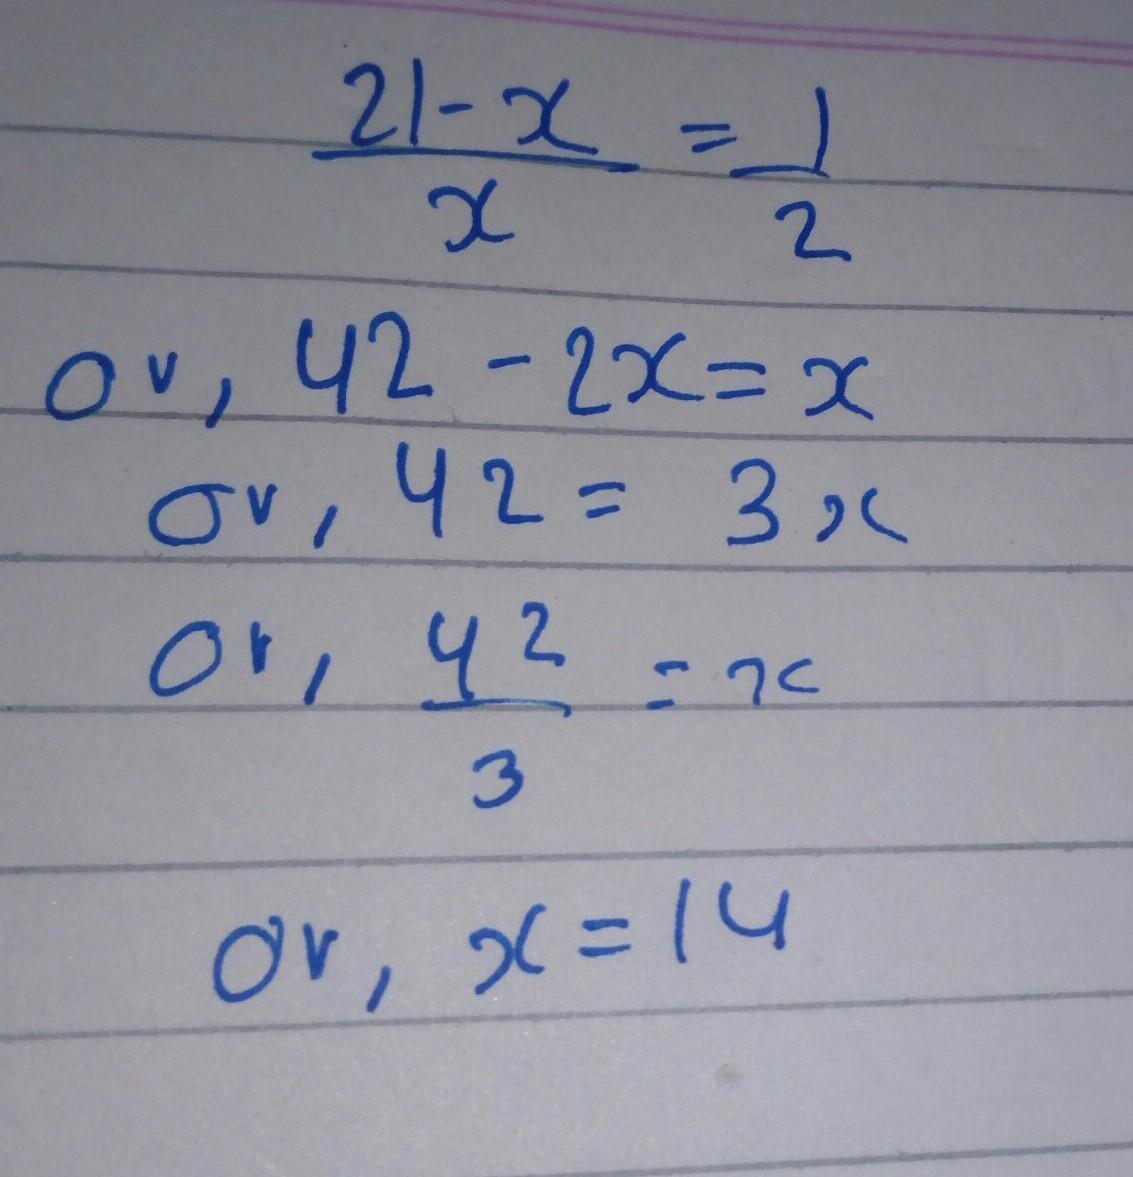 21-x/x = 1/2
or, 42 - 2x = x
or, 42 = 3x
or, 42/3 = x
or, x = 14